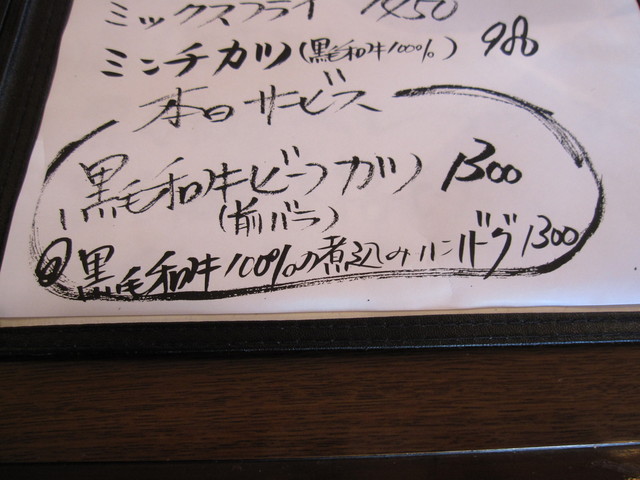 ミックスフライ 1450
ミンチカツ(黒毛和牛100%) 980
本日サービス
黒毛和牛ビーフカツ 1300
(前バラ)
黒毛和牛100%の煮込みハンバーグ 1300